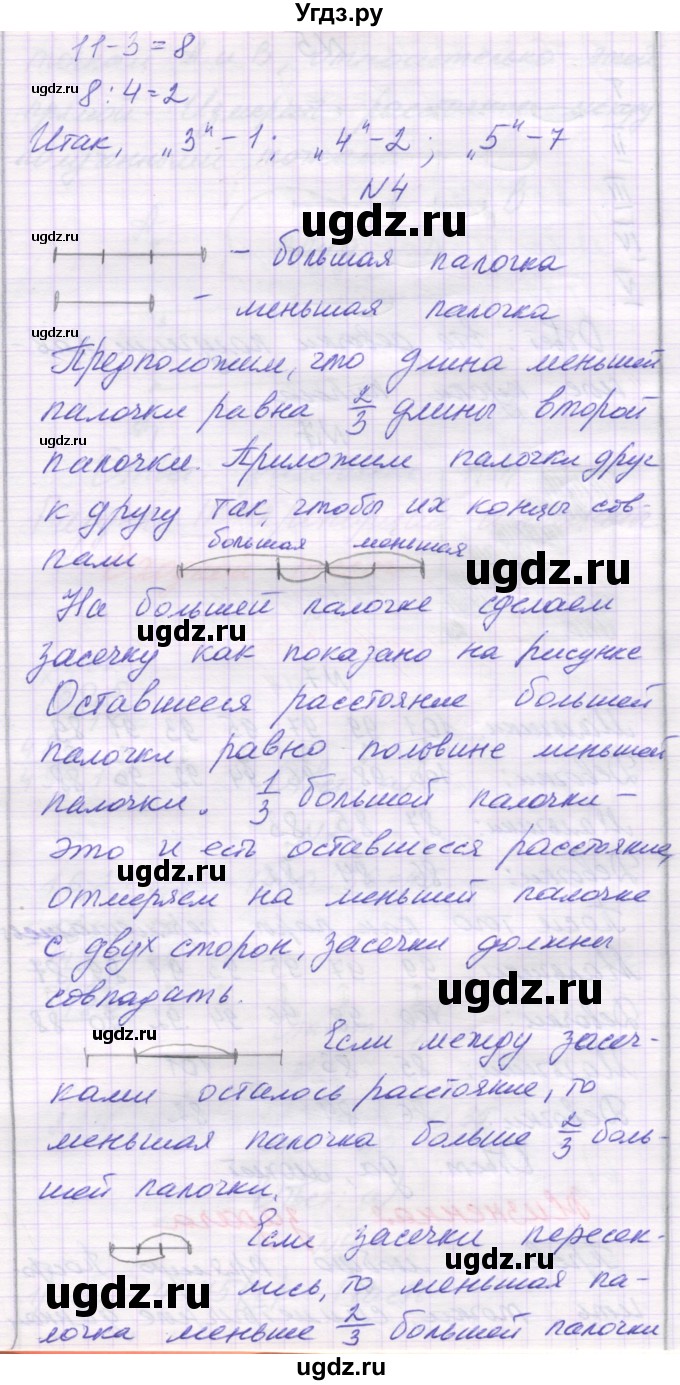 Угдз.ру
11-3=8
ugdz.ru
8:4=2
Итак, „3"-1; „4"-2; „5"-7
N4
ugdz.ru
ugdz.ru
- большая палочка
- меньшая палочка
ugdz.ru
Предположим, что длина меньшей
палочки равна 2/3 длины второй
ugdz.ru
палочки. Приложим палочки друг
к другу так, чтобы их концы сов-
пали большая меньшая
ugdz.ru
На большей палочке сделаем
ugdz.ru
засечку как показано на рисунке
Оставшееся расстояние большей
палочки равно половине меньшей
палочки. 1/3 большой палочки -
ugdz.ru
это и есть оставшееся расстояние,
ugdz.ru
отмеряем на меньшей палочке
с двух сторон, засечки должны
совпадать.
ugdz.ru
ugdz.ru
Если между засеч-
ками осталось расстояние, то
меньшая палочка больше 2/3 боль-
шей палочки.
ugdz.ru
Если засечки пересек-
лись, то меньшая па-
ugdz.ru
лочка меньше 2/3 большой палочки
ugdz.ru